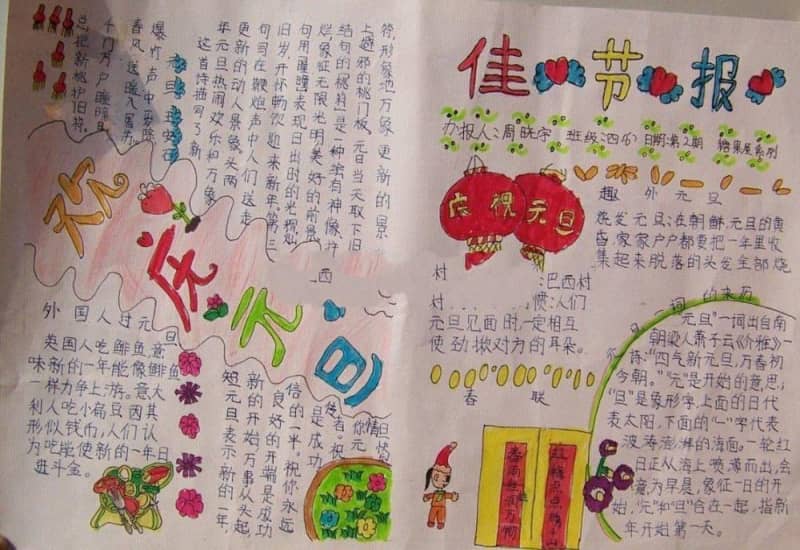 佳节报
办报人：周晓宇 班级：四(6) 日期：第2期 糖果屋系列
庆祝元旦
趣外元旦
烧发元旦：在朝鲜，元旦的黄
昏，家家户户都要把一年里收
集起来脱落的头发全部烧
村：巴西村
村惯：人们
元旦见面时，一定相互
使劲揪对方的耳朵。
春联
一词的来历
元旦"一词出自南
朝梁人萧子云《介雅》一
诗："四气新元旦，万春初
今朝。""元"是开始的意思；
"旦"是象形字，上面的日代
表太阳，下面的"一"字代表
波涛澎湃的海面。一轮红
日正从海上喷薄而出，会
意为早晨，象征一日的开
始，"元"和"旦"合在一起，指新
年开始第一天。
欢庆元旦
爆竹声中一岁除
春风送暖入屠苏
千门万户曈曈日
总把新桃护旧符。
更新的景
符，形象地万象
上避邪的桃门板，元旦当天取下旧
结句的桃符是一种画有神像，挂
烂，象征无限光明美好的前景
句用曈曈表现日出时的光辉灿
旧岁，开怀畅饮迎来新年，第三
句写在鞭炮声中人们送走
更新的动人景象，头两
年元旦热闹欢乐和万象
这首诗描写了新
外国人过元旦
英国人吃鲱鱼，意
味新的一年能像鲱鱼
一样力争上游。意大
利人吃小扁豆因其
形似钱币，人们认
为吃能使新的一年日
进斗金。
信的一半。祝你永远
良好的开端是成功
新的开始，万事从头起，
短元旦表示新的一年，